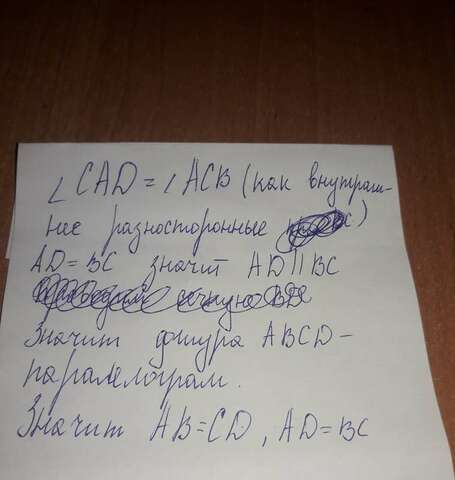 ∠CAD = ∠ACB (как внутраш-
нее разносторонные)
AD = BC значит AD || BC
Значит фигура ABCD -
паралелограм.
Значит AB = CD, AD = BC